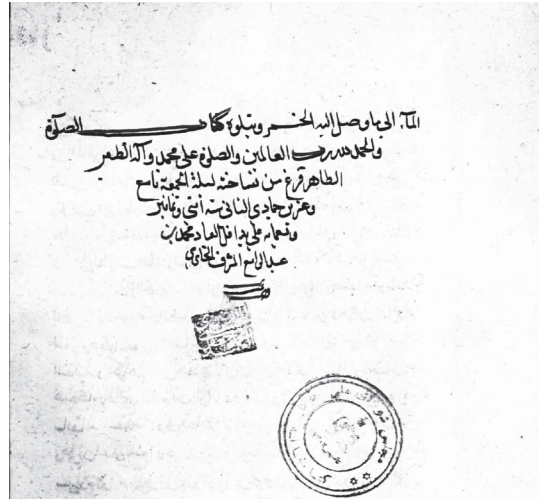 الماء الى ما وصل اليه الخمر ويتلوه كتاب الصلوة
والحمد لله رب العالمين والصلوة على محمد وآله الطهر
الطاهر فرغ من نساخته ليلة الجمعة تاسع
وعشرين جمادى الثانى سنة اثنى وثمانين
وتسعمائة على يد اقل العباد محمد بن
المشرف
مجلس شورای ملی